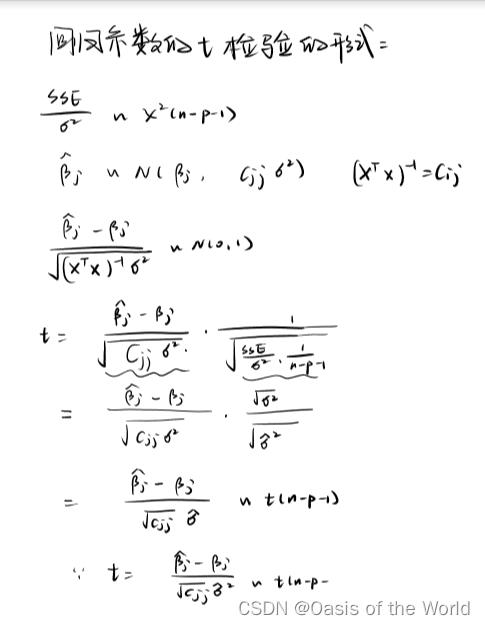 回归系数的 t 检验的形式=
SSE/σ² ~ χ²(n-p-1)
β̂j ~ N(βj, Cjj σ²) (XᵀX)⁻¹=Cij
(β̂j - βj)/√((XᵀX)⁻¹σ²) ~ N(0,1)
t = (β̂j - βj)/√(Cjj σ²) · 1/√(SSE/σ² · 1/(n-p-1))
= (β̂j - βj)/√(Cjj σ²) · √σ²/√σ̂²
= (β̂j - βj)/(√Cjj σ̂) ~ t(n-p-1)
∵ t = (β̂j - βj)/(√Cjj σ̂²) ~ t(n-p-
CSDN @Oasis of the World